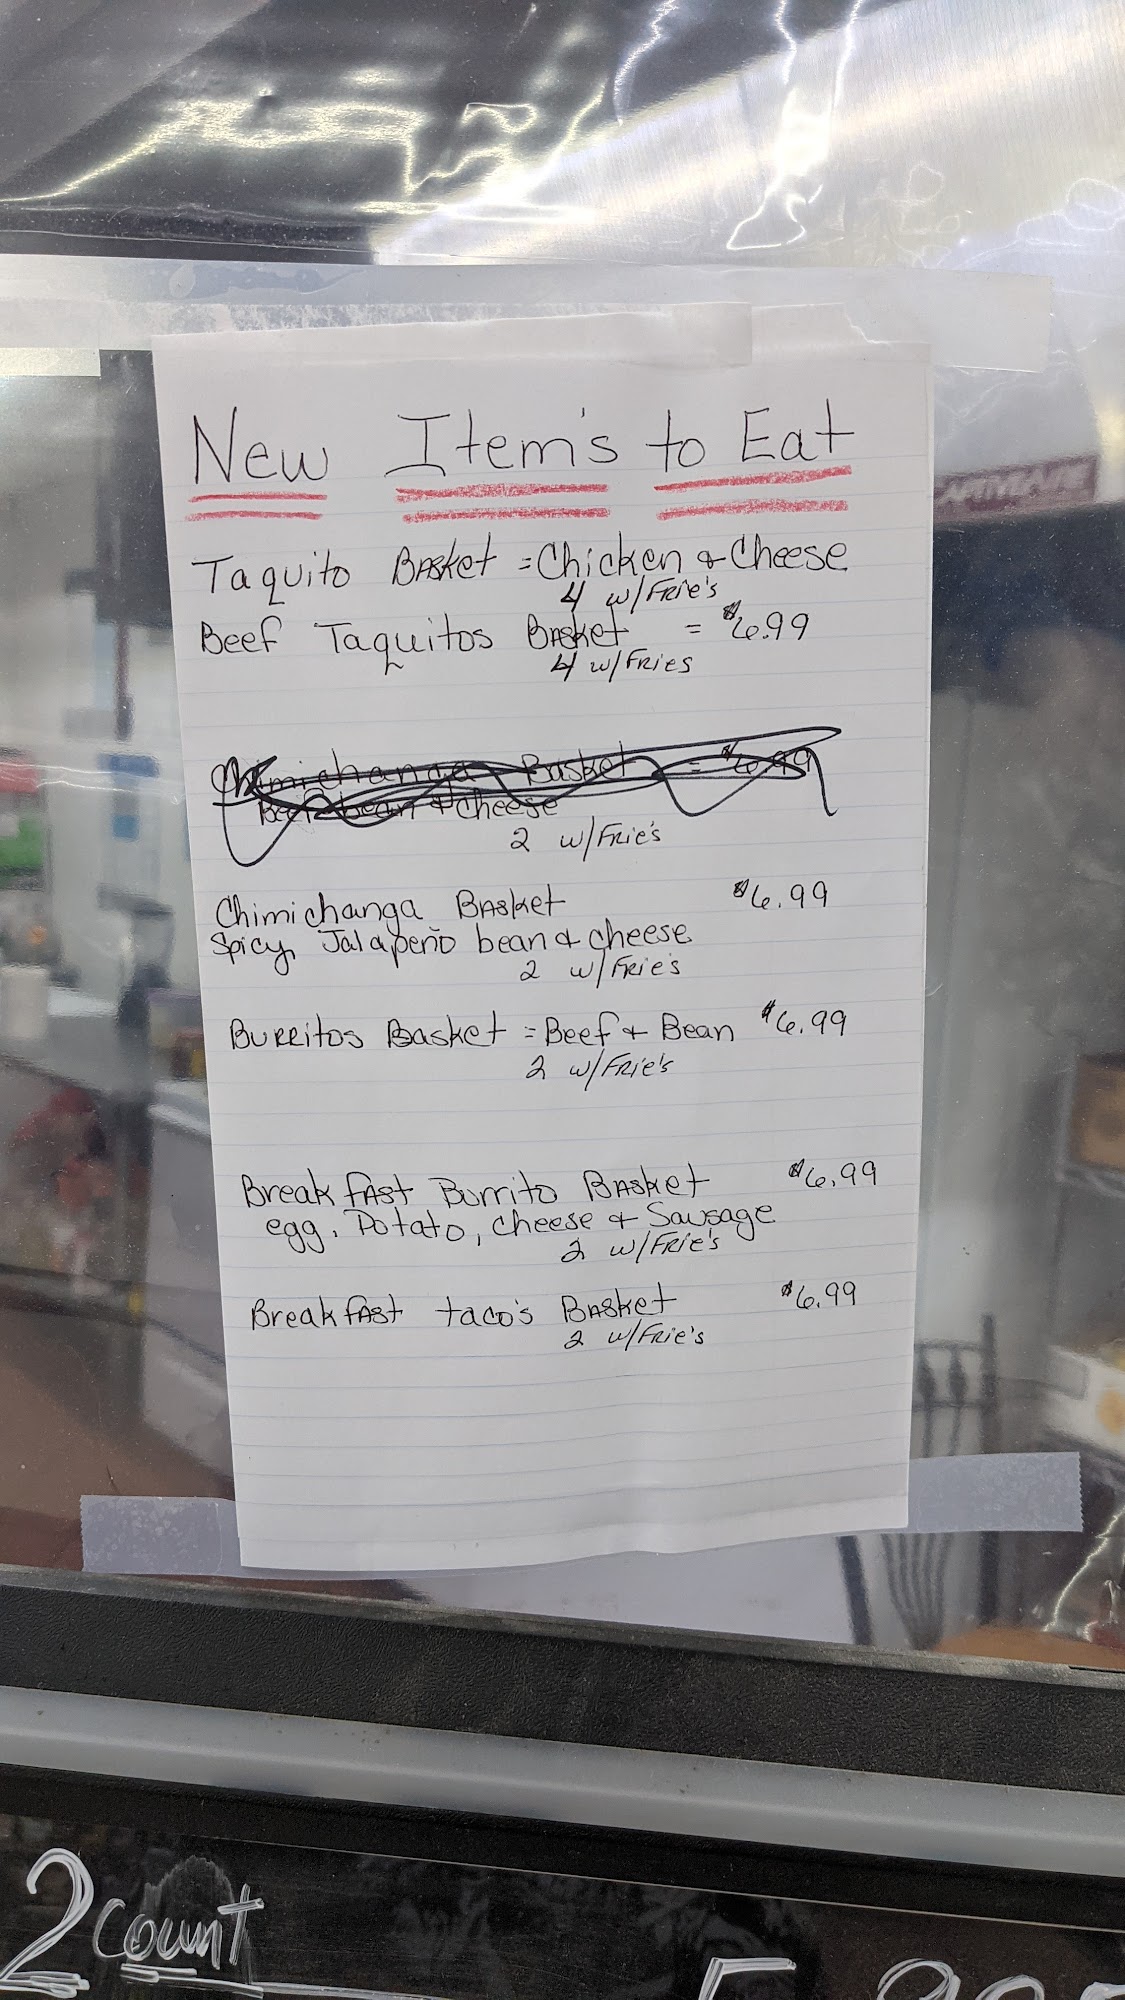 New Item's to Eat
Taquito Basket = Chicken & Cheese
4 w/Frie's
Beef Taquitos Basket = $6.99
4 w/Fries
Chimichanga Basket = $6.99
Beef bean & Cheese
2 w/Frie's
Chimichanga Basket $6.99
Spicy Jalapeño bean & cheese
2 w/Frie's
Burritos Basket = Beef & Bean $6.99
2 w/Frie's
Breakfast Burrito Basket $6.99
egg, Potato, cheese & Sausage
2 w/Frie's
Breakfast taco's Basket $6.99
2 w/Frie's
2 count